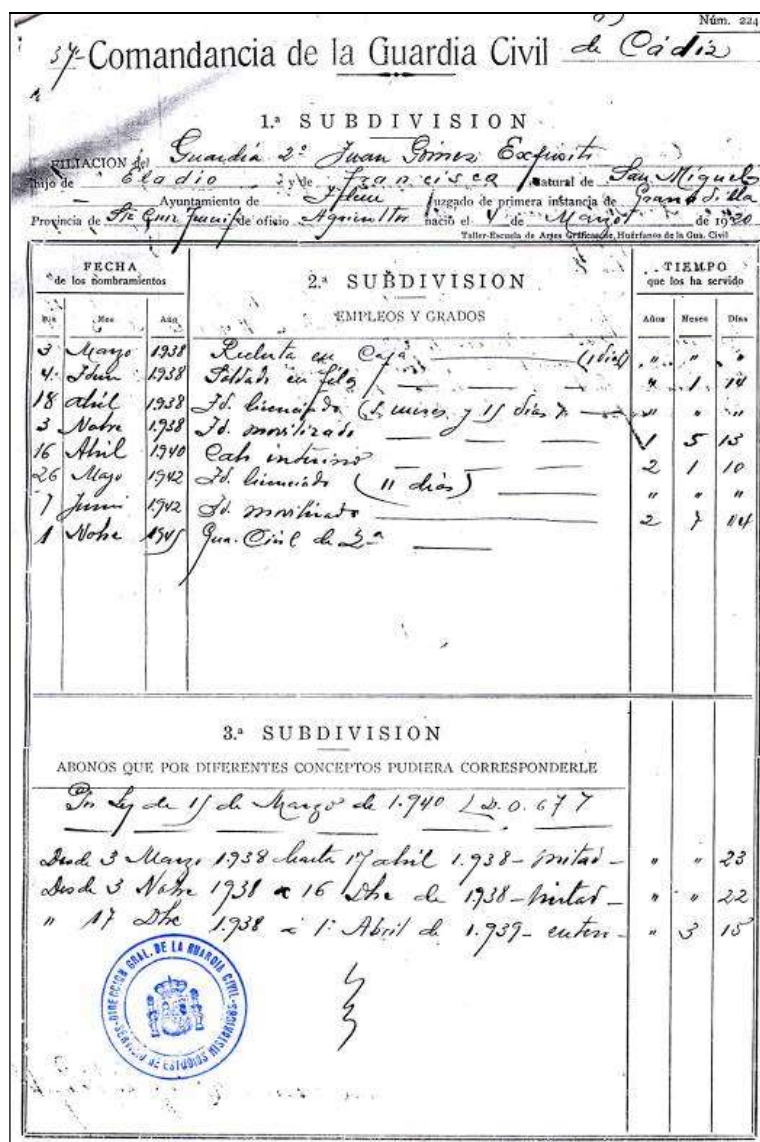 Núm. 224
37ª Comandancia de la Guardia Civil de Cádiz
1.ª SUBDIVISION
FILIACION del Guardia 2º Juan Gómez Expósito
hijo de Eladio y de Francisca natural de San Miguel
Ayuntamiento de Juzgado de primera instancia de Granadilla
Provincia de Sta Cruz Tenerife de oficio Agricultor nació el 4 de Marzo de 1920
Taller-Escuela de Artes Gráficas de Huérfanos de la Gua. Civil
FECHA de los nombramientos
2.ª SUBDIVISION
TIEMPO que los ha servido
Día Mes Año EMPLEOS Y GRADOS Años Meses Días
3 Marzo 1938 Recluta en Caja (1 día) " " "
4 Idem 1938 Soldado en filas " 1 14
18 abril 1938 Id. licenciado (6 meses y 15 días) " " "
3 Nobre 1938 Id. movilizado 1 5 13
16 Abril 1940 Cabo interino 2 1 10
26 Mayo 1942 Id. licenciado (11 días) " " "
7 Junio 1942 Id. movilizado 2 7
1 Nobre 1945 Gua. Civil de 2ª
3.ª SUBDIVISION
ABONOS QUE POR DIFERENTES CONCEPTOS PUDIERA CORRESPONDERLE
Por Ley de 15 de Marzo de 1.940 D.O. 67
Desde 3 Marzo 1.938 hasta 17 abril 1.938 - mitad - " " 23
Desde 3 Nobre 1938 a 16 Dbe de 1938 - mitad - " " 22
" 17 Dbe 1.938 a 1º Abril de 1.939 - entero - " 3 15
DIRECCION GRAL. DE LA GUARDIA CIVIL
SERVICIO DE ESTUDIOS HISTORICOS